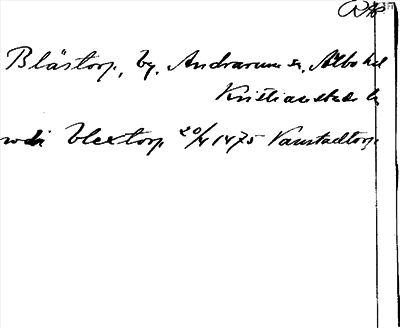 Blästorp, by, Andrarum sn, Albo hd
Kristianstads l
Blextorp 20/4 1475 Vanstadtorp